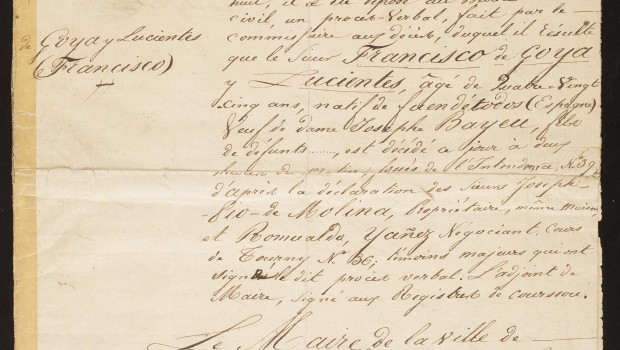 de
Goya y Lucientes
(Francisco)
civil, un procès-Verbal, fait par le
commissaire aux décès, duquel il Résulte
que le Sieur Francisco de Goya
y Lucientes, âgé de Quatre-Vingt
cinq ans, natif de faendétodos (Espagne)
Veuf de dame Josephe Bayeu, fils
de défunts......, est décédé ce jour à deux
heures du matin, fossés de l'Intendance, No. 39
d'après la déclaration des Sieurs Joseph
Pio de Molina, Propriétaire, même Maison,
et Romualdo, Yañez Négociant, Cours
de Tourny No. 56; témoins majeurs qui ont
signé le dit procès verbal. L'adjoint de
Maire, signé aux Registres de
Le Maire de la Ville de